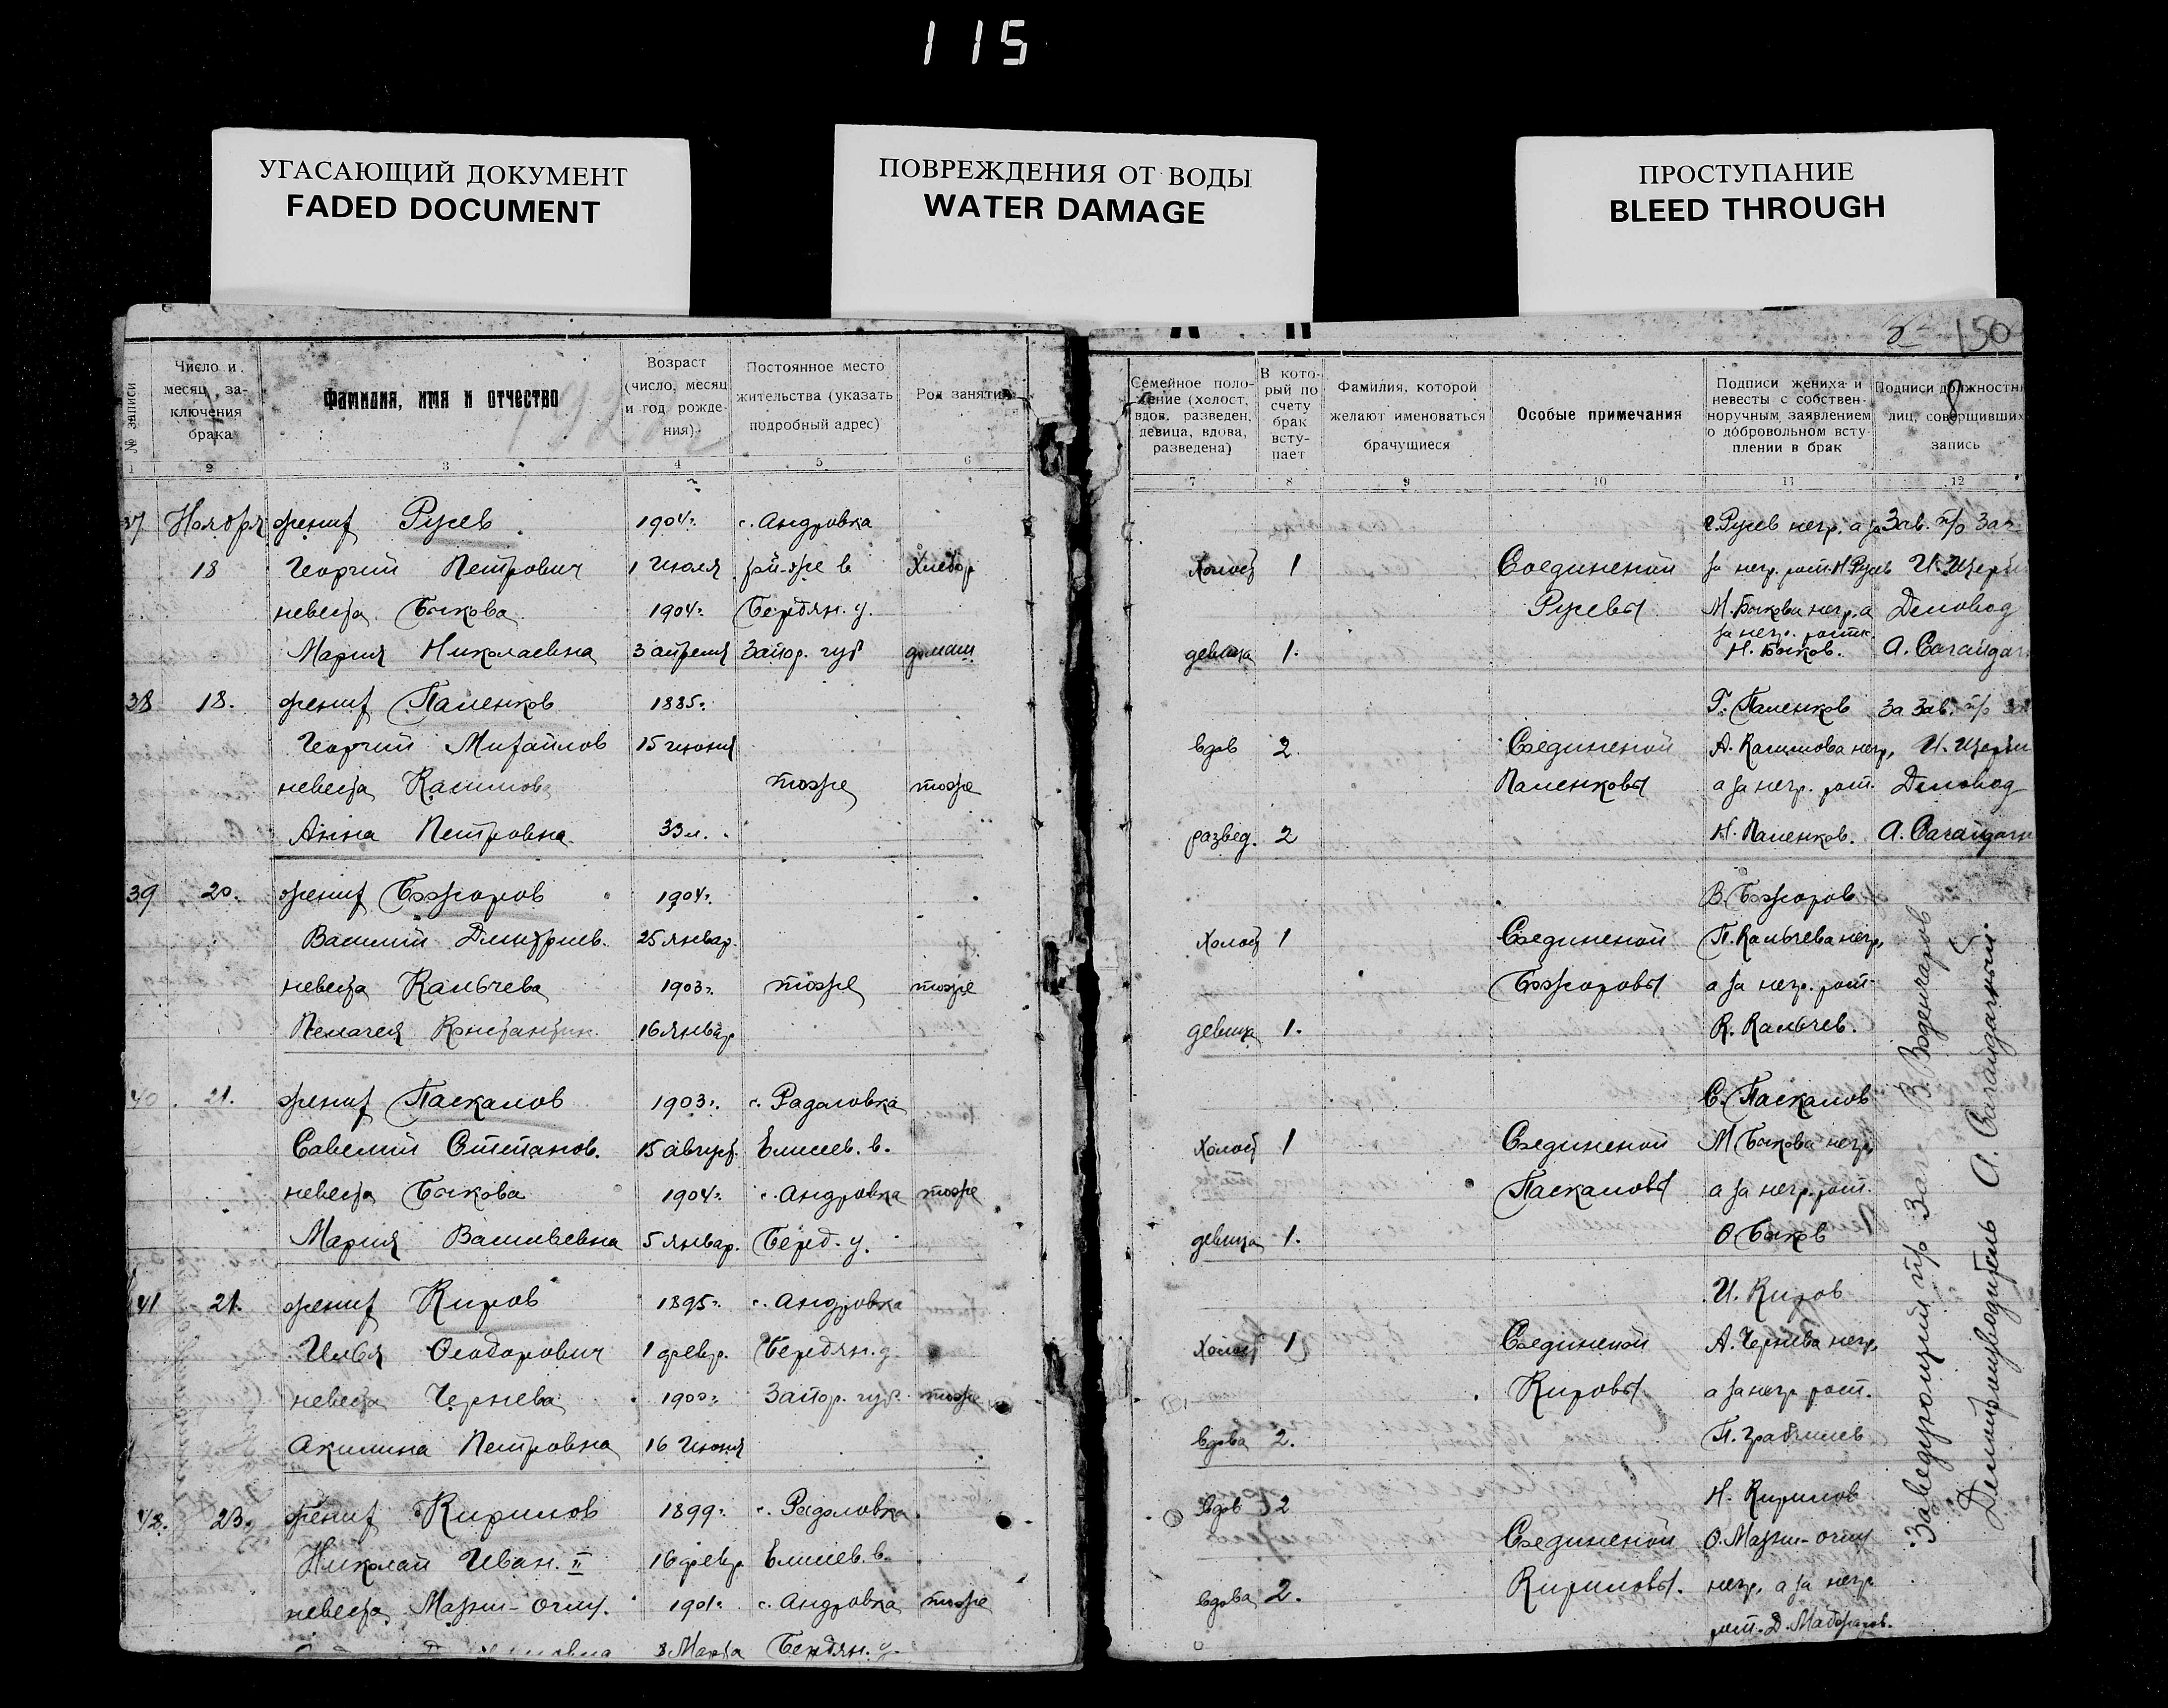 115
УГАСАЮЩИЙ ДОКУМЕНТ
FADED DOCUMENT
ПОВРЕЖДЕНИЯ ОТ ВОДЫ
WATER DAMAGE
ПРОСТУПАНИЕ
BLEED THROUGH
150
№ записи
Число и месяц за-ключения брака
Фамилия, имя и отчество
Возраст (число, месяц и год рожде-ния)
Постоянное место жительства (указать подробный адрес)
Род занятия
1 2 3 4 5 6
37 Ноября жених Русев 1904г. с. Андровка
18 Георгий Петрович 1 Июля хлебор
невеста Быкова 1904г. Бердян. у.
Мария Николаевна 3 апреля Запор. губ домаш
38 18. жених Паленков 1885г.
Георгий Михайлов 15 июня
невеста тоже тоже
Анна Петровна 33 л.
39 20. жених Божоров 1904г.
Василий Дмитриев. 25 январ.
невеста Кальчева 1903г. тоже тоже
Пелагея Константин. 16 январ
40 21. жених Паскалов 1903г. с. Радоловка
Савелий Степанов. 15 август. Елисеев. в.
невеста Быкова 1904г. с. Андровка тоже
Мария Васильевна 5 январ. Берд. у.
41 21. жених Киров 1895г. с. Андровка
Илья Феодорович 1 февр. Бердян. у
невеста Чернева 1900г. Запор. губ. тоже
Акилина Петровна 16 Июня
42. 23. жених Кирилов 1899г. с. Радоловка
Николай Иван. II 16 февр Елисеев. в.
невеста 1901г. с. Андровка тоже
8 Марта Бердян. у.
Семейное поло-жение (холост, вдов, разведен, девица, вдова, разведена)
В кото-рый по счету брак всту-пает
Фамилия, которой желают именоваться брачущиеся
Особые примечания
Подписи жениха и невесты с собствен-норучным заявлением о добровольном всту-плении в брак
Подписи должностн лиц, совершивших запись
7 8 9 10 11 12
Г. Русев негр. а за Зав. п/о Заг
Холост 1 Соединеной за негр. росп. Н. Русев
Русевы М. Быкова негр. а Деловод
за негр. росп.
девица 1. Н. Быков. А. Сагайдач
Г. Паленков За Зав. п/о Заг
вдов 2. Соединеной
Паленковы а за негр. росп. Деловод
развед. 2 Н. Паленков. А. Сагайдачн
В. Божоров
Холост 1 Соединеной П. Кальчева негр,
Божоровы а за негр. росп.
девица 1. К. Кальчев.
С. Паскалов
Холост 1 Соединеной М Быкова негр,
Паскаловы а за негр. росп.
девица 1. Ф Быков
И. Киров
Холост 1 Соединеной А. Чернева негр,
Кировы а за негр росп.
вдова 2.
вдов 2 Н. Кирилов
Соединеной
вдова 2. Кириловы. негр, а за негр
росп. Д.
Заведующий п/о Заг В. Воденчаров
Делопроизводитель А. Сагайдачный.